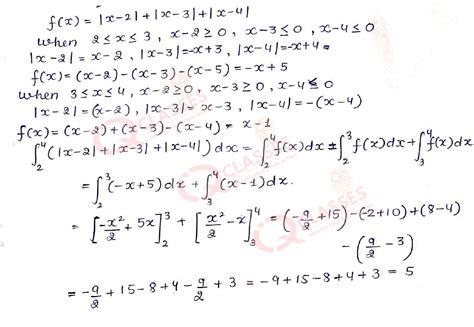 f(x) = |x-2| + |x-3| + |x-4|
when 2 ≤ x ≤ 3, x-2 ≥ 0, x-3 ≤ 0, x-4 ≤ 0
|x-2| = x-2, |x-3| = -x+3, |x-4| = -x+4
f(x) = (x-2) - (x-3) - (x-5) = -x+5
when 3 ≤ x ≤ 4, x-2 ≥ 0, x-3 ≥ 0, x-4 ≤ 0
|x-2| = (x-2), |x-3| = x-3, |x-4| = -(x-4)
f(x) = (x-2) + (x-3) - (x-4) = x-1
∫_2^4 (|x-2| + |x-3| + |x-4|) dx = ∫_2^4 f(x) dx ± ∫_2^3 f(x) dx + ∫_3^4 f(x) dx
= ∫_2^3 (-x+5) dx + ∫_3^4 (x-1) dx.
= [-x²/2 + 5x]_2^3 + [x²/2 - x]_3^4 = (-9/2 + 15) - (-2+10) + (8-4)
- (9/2 - 3)
= -9/2 + 15 - 8 + 4 - 9/2 + 3 = -9 + 15 - 8 + 4 + 3 = 5
CLASSES